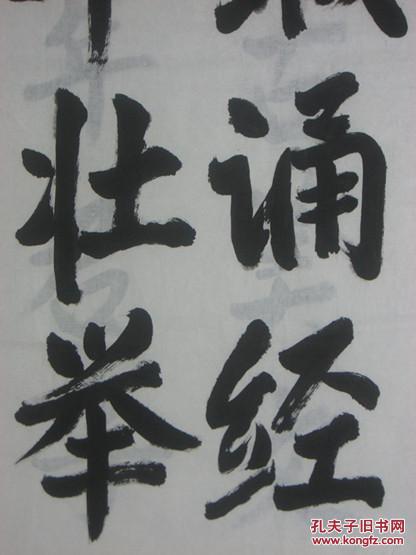 诵经
壮举
孔夫子旧书网
www.kongfz.com